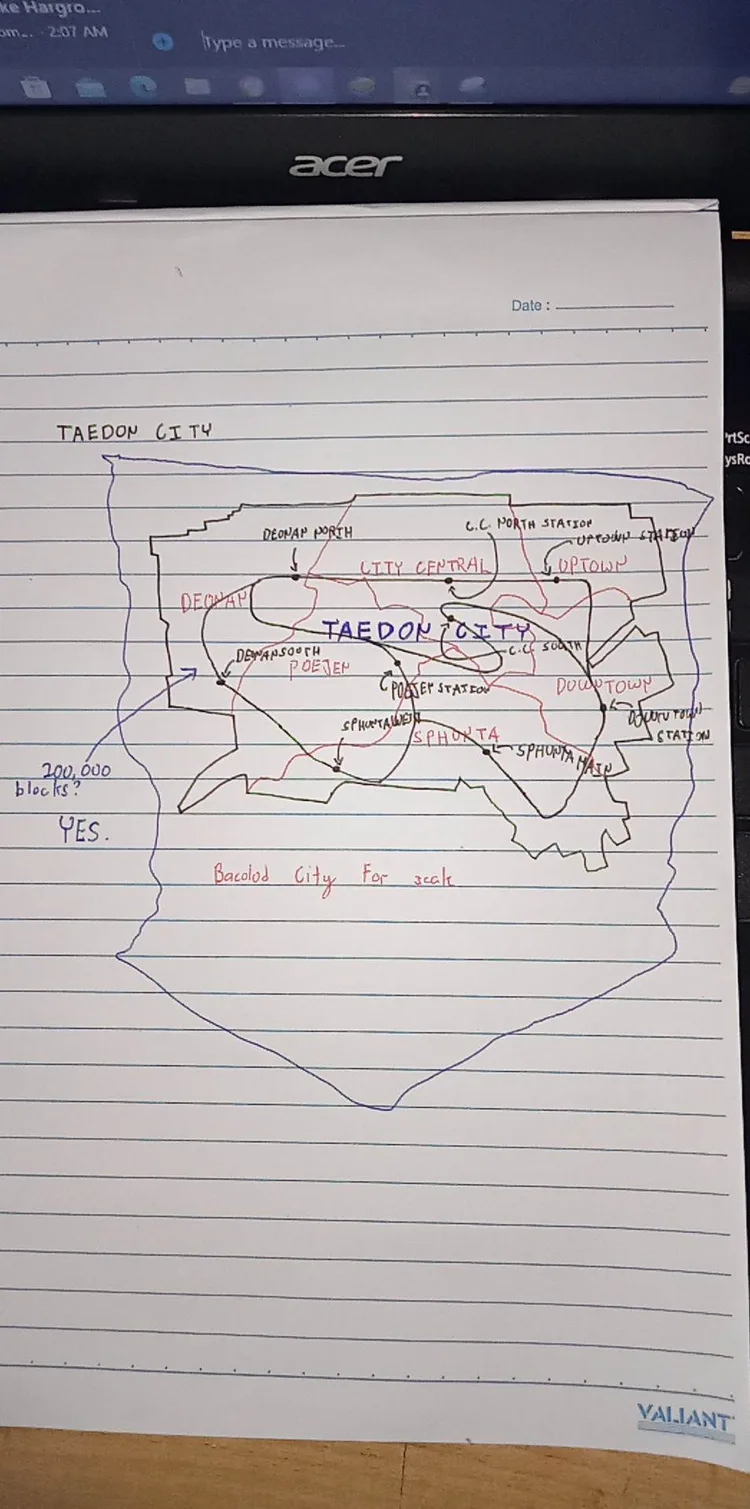 ke Hargro...
om... · 2:07 AM
Type a message...
acer
Date :
rtSc
ysRq
TAEDON CITY
DEONAN NORTH
C.C. NORTH STATION
UPTOWN STATION
CITY CENTRAL
UPTOWN
DEONAN
TAEDON CITY
DEONANSOUTH
C.C. SOUTH
POEJEN
POEJEN STATION
DOWNTOWN
DOWNTOWN
STATION
SPHUNTAWEST
SPHUNTA
SPHUNTA MAIN
200,000
blocks?
YES.
Bacolod City For scale
VALIANT